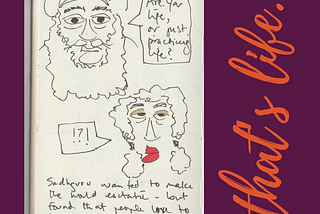 Are you
life,
or just
practicing
life?
!?!
Sadhguru wanted to make
the world ecstatic - but
found that people love to
that's life.